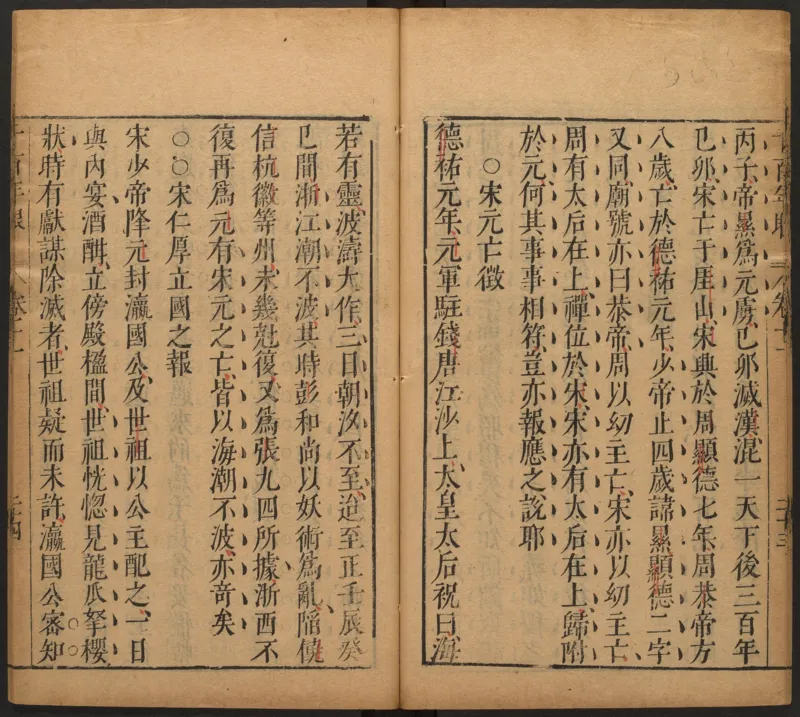 丙子帝㬎為元虜已卯滅漢混一天下後三百年
巳卯宋亡于厓山宋興於周顯德七年周恭帝方
八歲亡於德祐元年少帝止四歲諱㬎顯德二字
又同廟號亦曰恭帝周以幼主亡宋亦以幼主亡
周有太后在上禪位於宋宋亦有太后在上歸附
於元何其事事相符豈亦報應之說耶
○宋元亡徵
德祐元年元軍駐錢唐江沙上太皇太后祝曰海
若有靈波濤大作三日朝汐不至迨至正壬辰癸
巳間浙江潮不波其時彭和尚以妖術為亂陷饒
信杭徽等州未幾尅復又為張九四所據浙西不
復再為元有宋元之亡皆以海潮不波亦奇矣
○○宋仁厚立國之報
宋少帝降元封瀛國公及世祖以公主配之一日
與內宴酒酣立傍殿楹間世祖恍惚見龍爪拏櫻
狀時有獻謀除滅者世祖疑而未許瀛國公審知